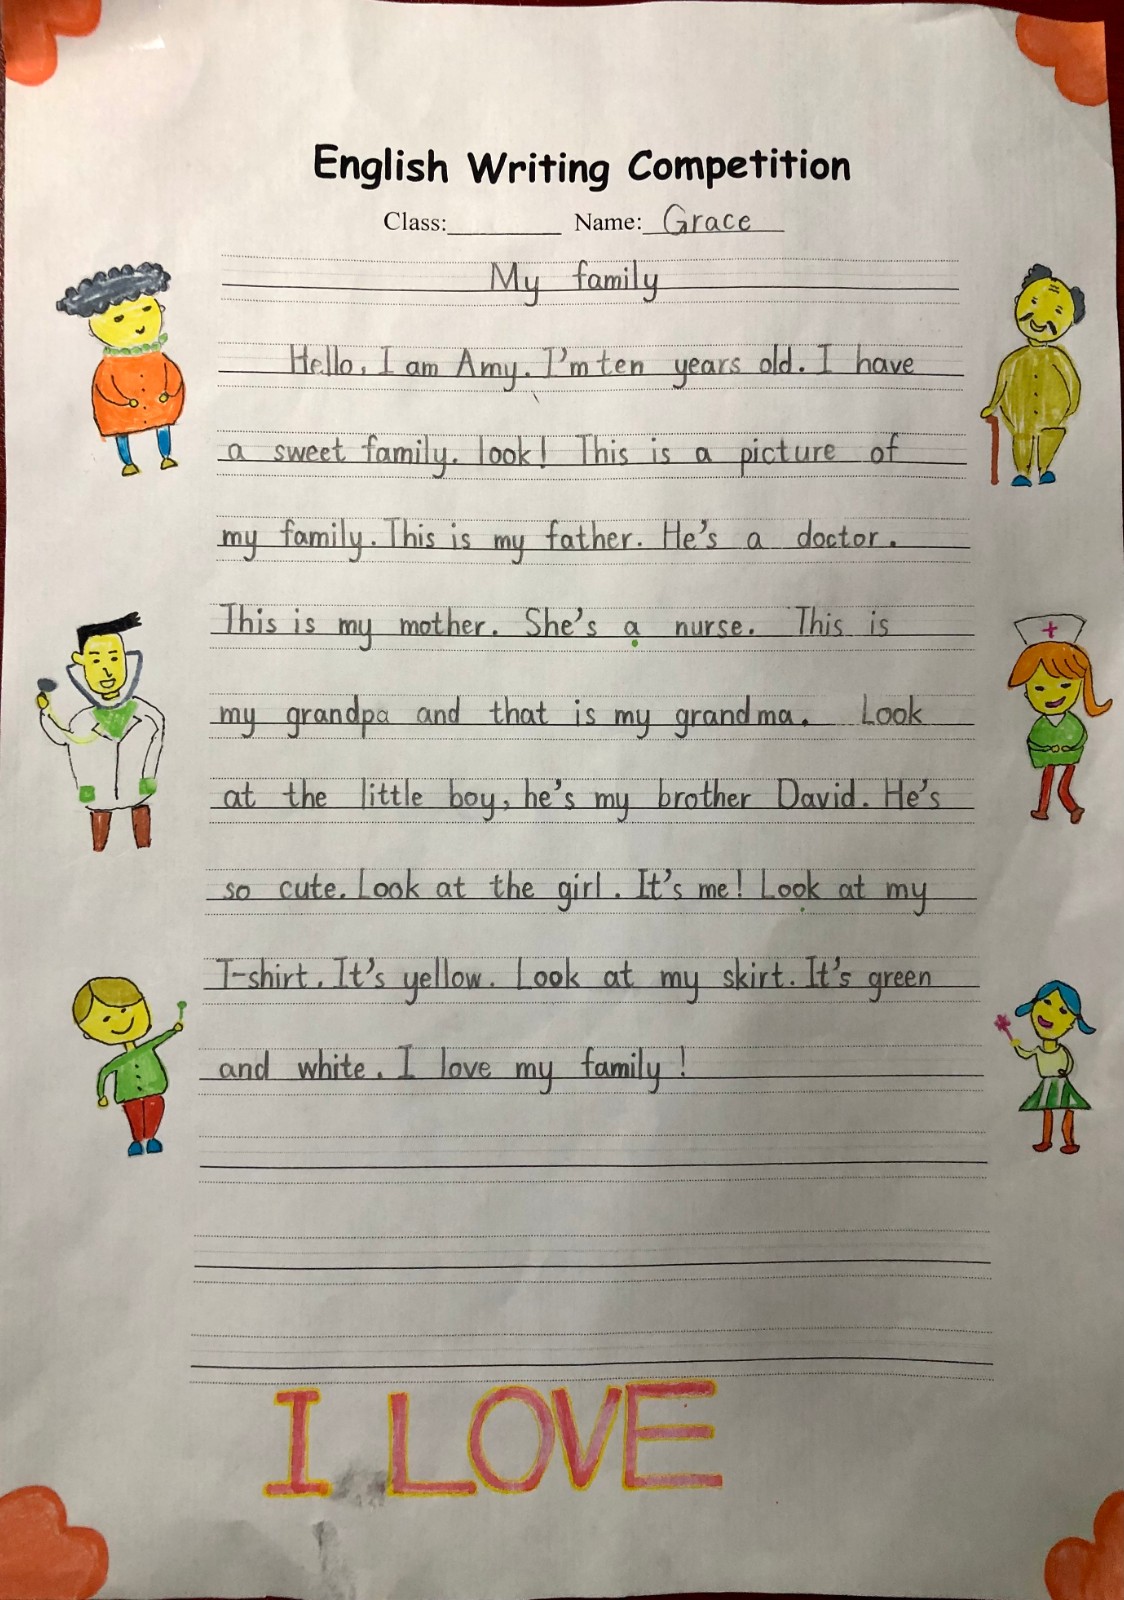 English Writing Competition
Class:________ Name: Grace
My family
Hello, I am Amy. I'm ten years old. I have
a sweet family. look! This is a picture of
my family. This is my father. He's a doctor.
This is my mother. She's a nurse. This is
my grandpa and that is my grandma. Look
at the little boy, he's my brother David. He's
so cute. Look at the girl. It's me! Look at my
T-shirt. It's yellow. Look at my skirt. It's green
and white. I love my family!
I LOVE